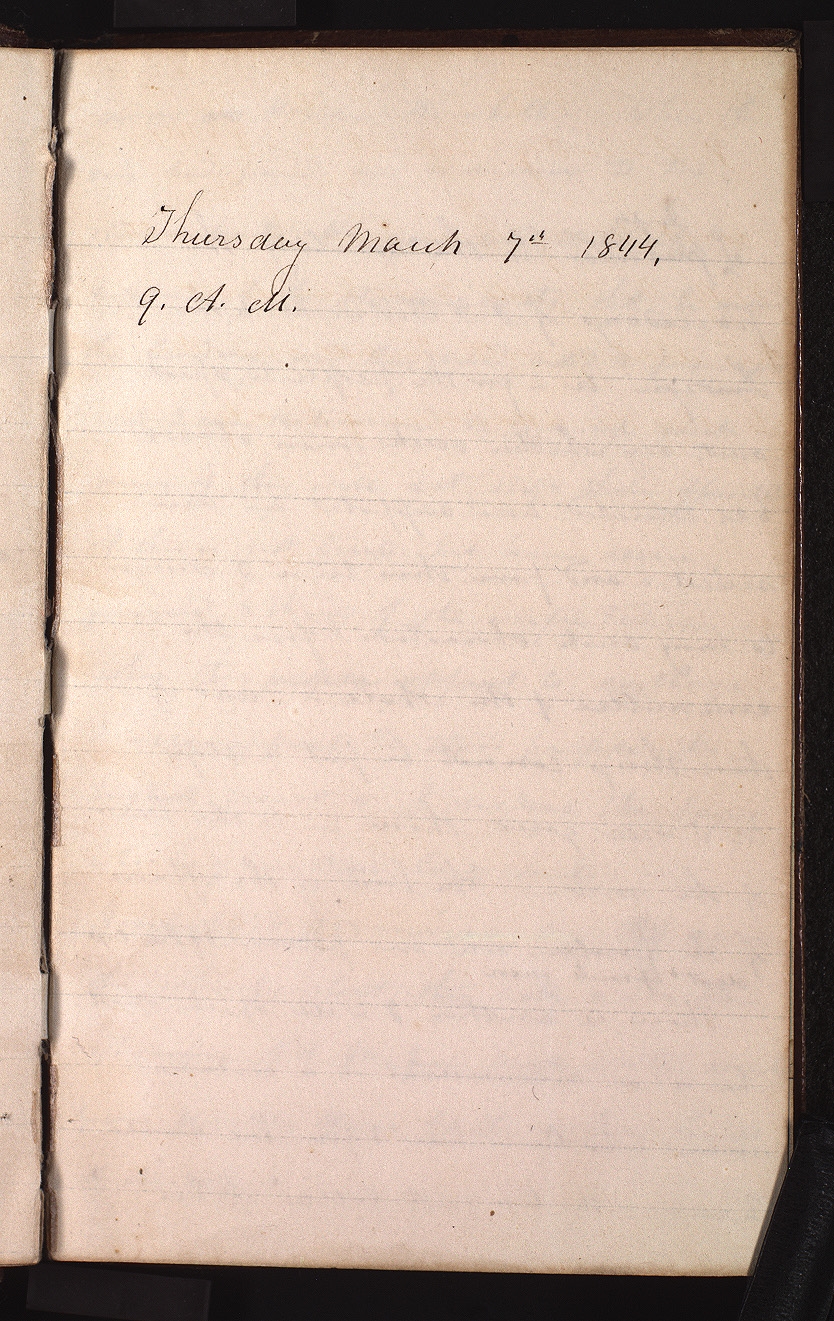 Thursday March 7th 1844.
9. A. M.